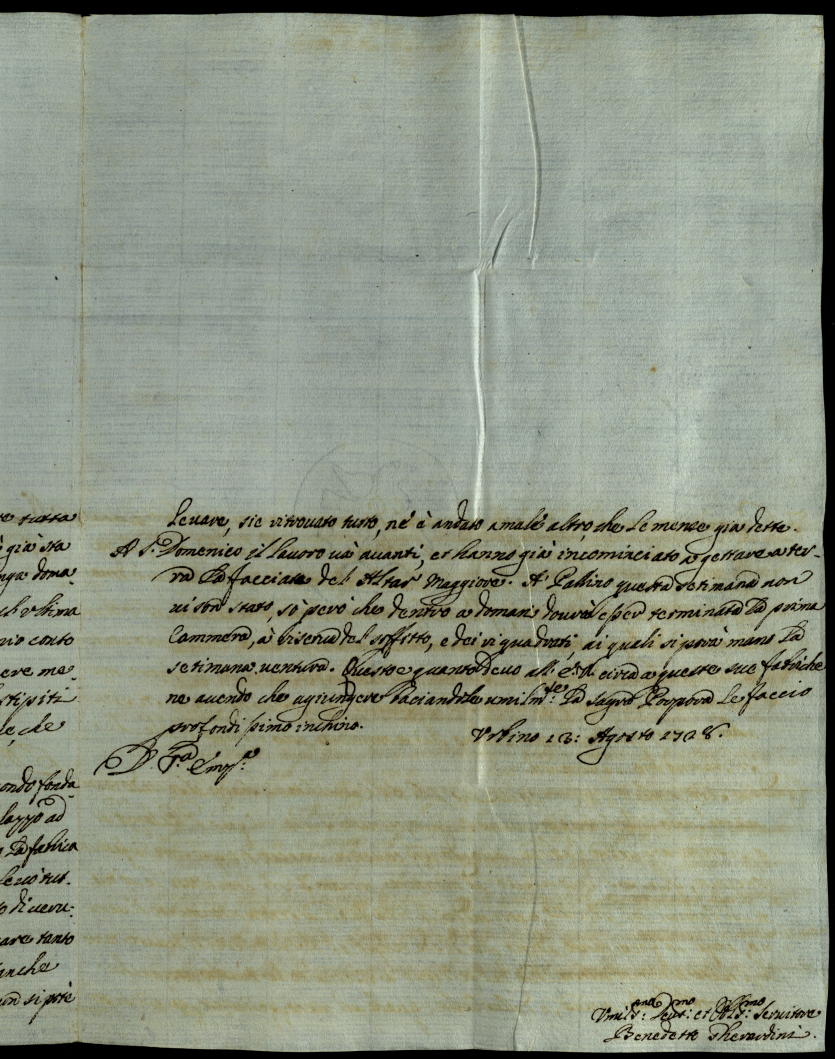 re tutta
è già sta
nga doma-
ch'ultima
nio conto
vere me-
stipiti
le, che
ondo fonda-
lazzo ad
La fabrica
tut-
care tanto
anche
non si potè
Levare, si è ritrovato tutto, nè è andato a male altro, che le mense già dette.
A S. Domenico il lavoro và avanti, et hanno già incominciato a gettare a ter-
ra la facciata del Altar Maggiore. A Pallino questa setimana non
vi son stato, sò però che dentro a domani dovrà esser terminata la prima
Cammera, à riserva del soffitto, e dei riquadrati, ai quali si porrà mano la
setimana ventura. Questo è quanto devo all' E.V. circa a queste sue fabriche
ne avendo che agiungere baciandole umilm.te la sagra Porpora le faccio
profondissimo inchino.
Urbino 13: Agosto 1728.
D. V.ra Em.za
Umiliss: Dev.mo: et Obl.mo: Servitore
Benedetto Gherardini.